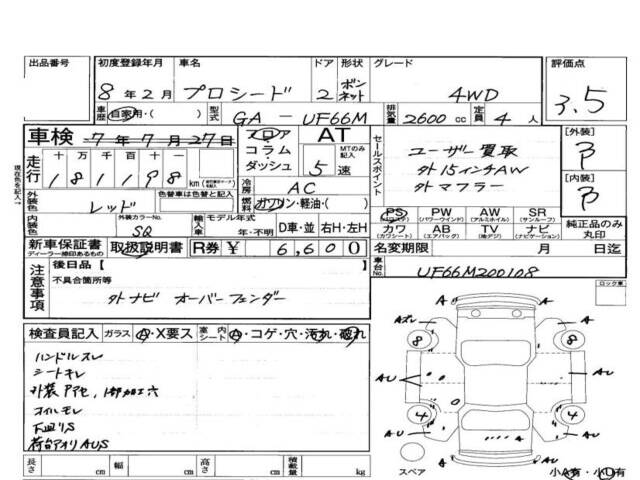 出品番号 初度登録年月 車名 ドア 形状 グレード 評価点
8年2月 プロシード 2 ボンネット 4WD 3.5
車歴 自家用・( ) 型式 GA-UF66M 排気量 2600cc 定員 4人
車検 7年7月27日 フロア コラム・ダッシュ AT MTのみ記入 5速
走行 十万千百十一 181198 km
冷房 AC
燃料 ガソリン・軽油・( )
外装色 レッド 色替車は色替と記入
内装色 外装カラーNo. SQ 輸入車 モデル年式 年・不明 D車・並 右H・左H
新車保証書 ディーラー捺印あるもの 取扱説明書 R券 ¥6,600
セールスポイント
ユーザー買取
外15インチAW
外マフラー
[外装]
[内装]
PS PW AW SR
(パワーウインド) (アルミホイル) (サンルーフ)
カワ AB TV ナビ
(カワシート) (エアバッグ) (地デジ) (ナビゲーション)
純正品のみ丸印
名変期限 月 日迄
車台No. UF66M200108
現在色を記入
注意事項 後日品[
不具合箇所等
外ナビ オーバーフェンダー
ロック車
検査員記入 ガラス A・X要ス 室内シート A・コゲ・穴・汚れ・破れ
ハンドルスレ
シートキレ
オイルモレ
下廻りS
荷台アオリAUS
A A
Aズレ A
8 8
AU A
AU
4 4
AU AU
A
スペア 小A有・小U有
長さ cm 幅 cm 高さ cm 積載量 kg